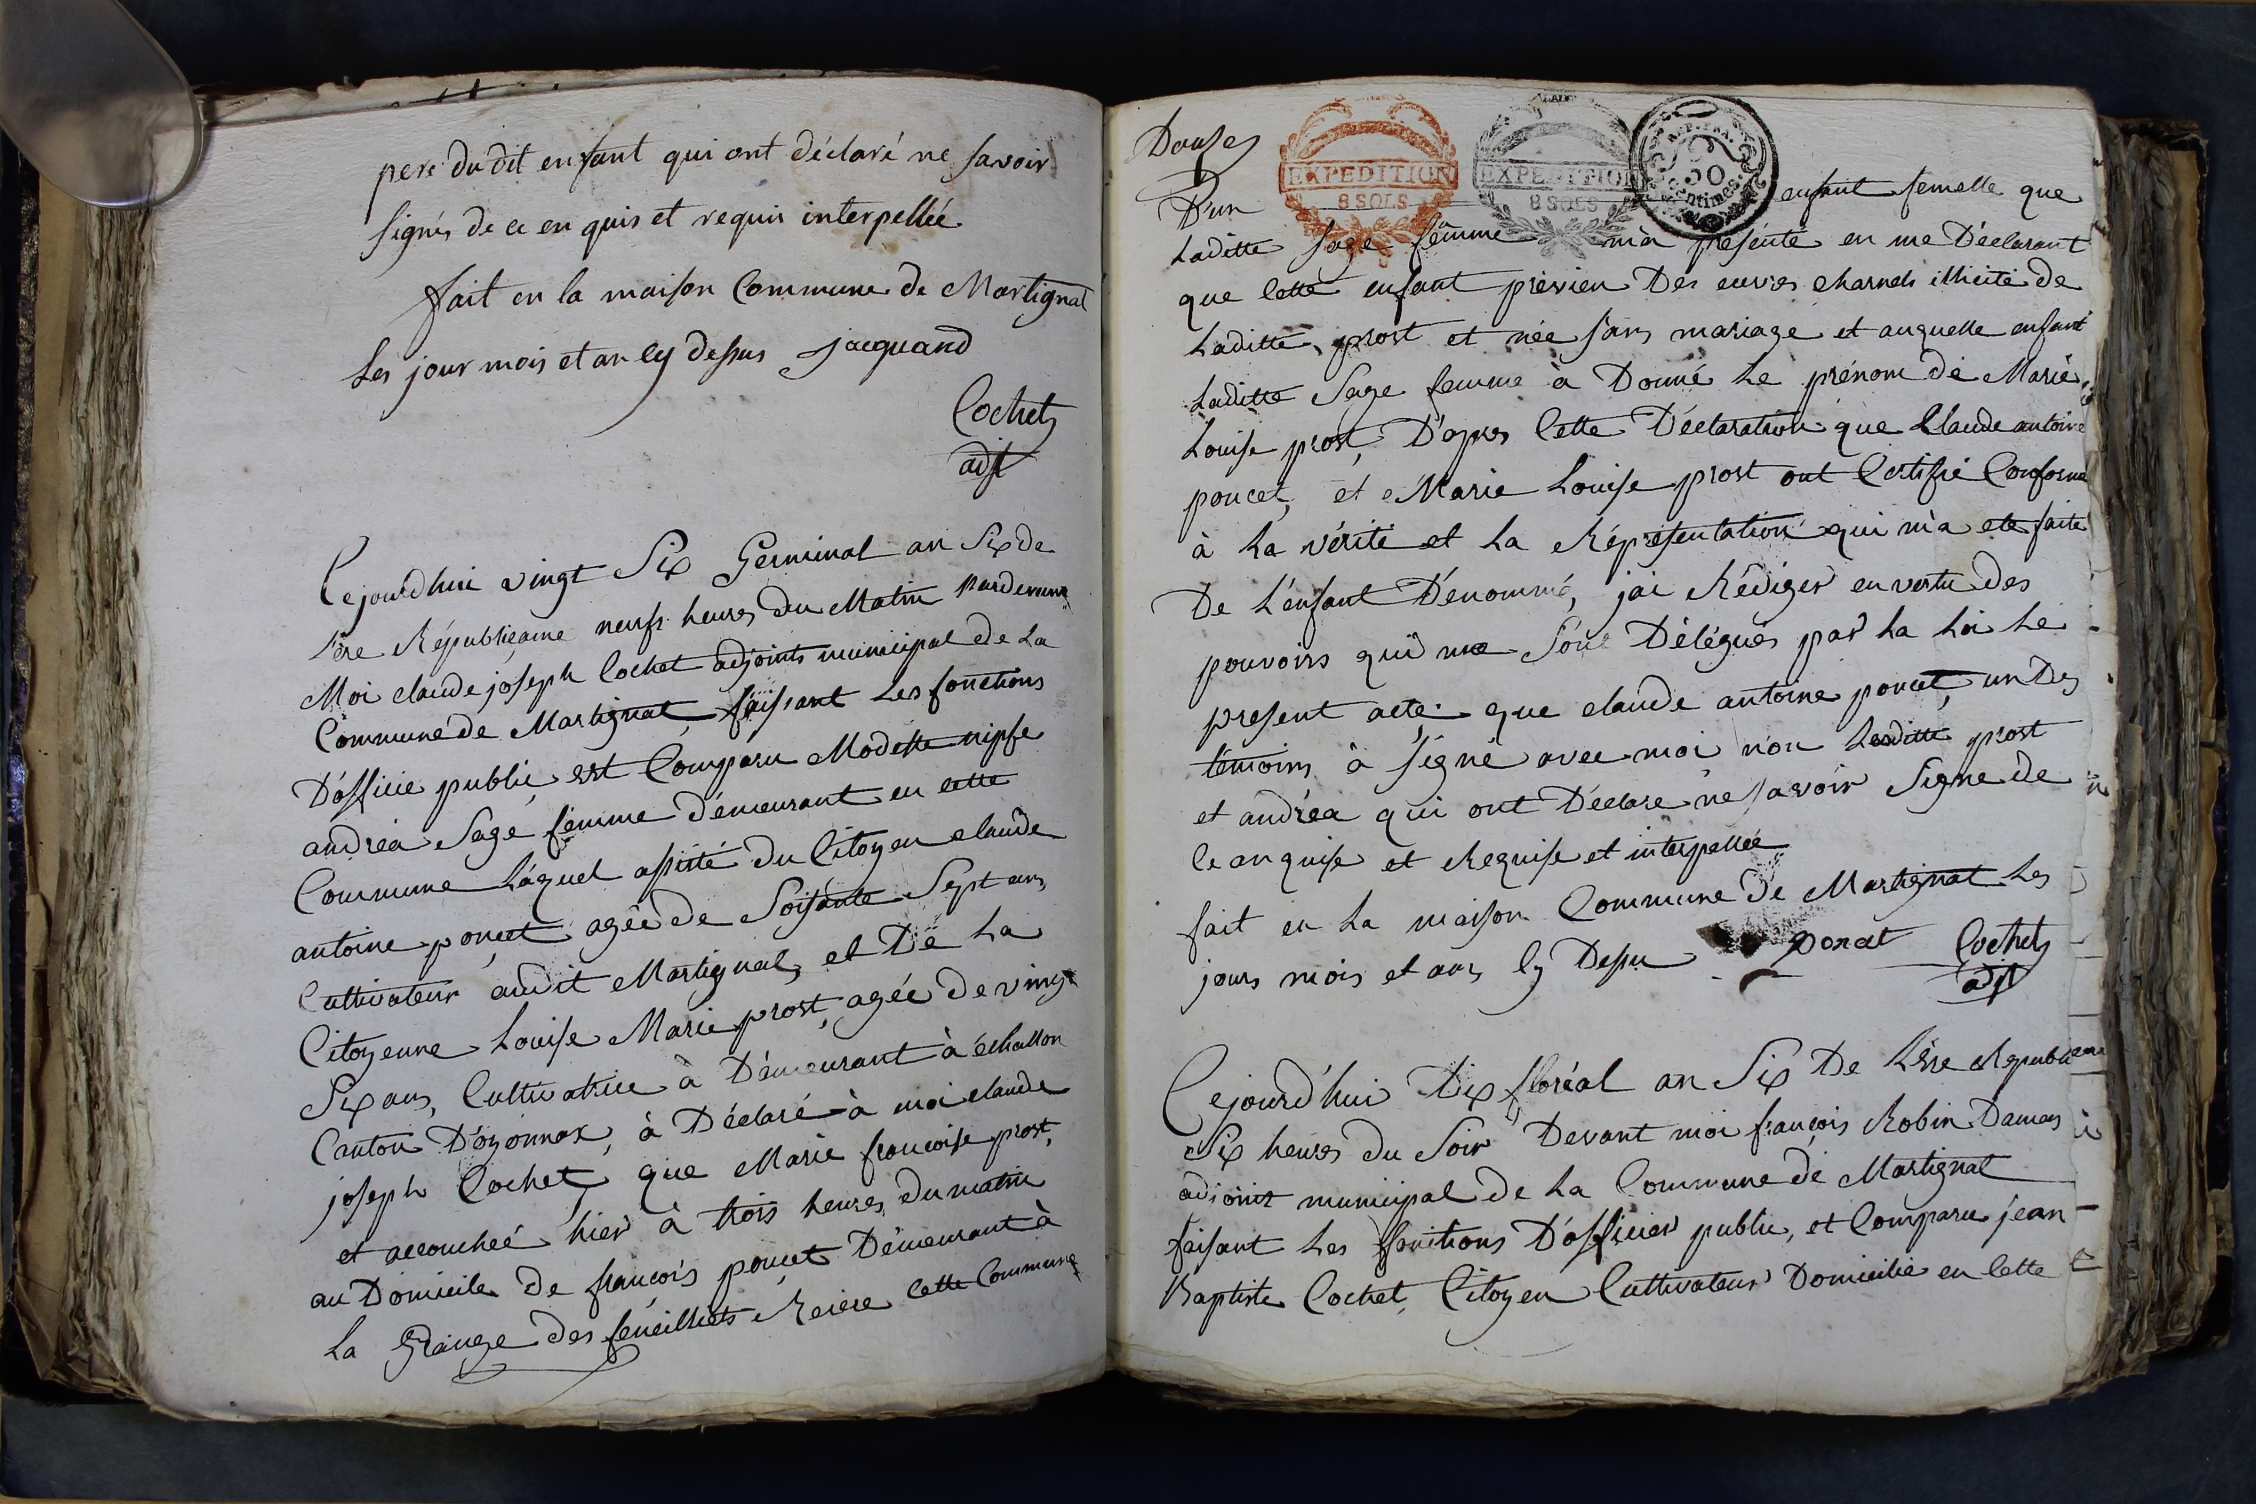 pere du dit enfant qui ont déclaré ne savoir
signés de ce en quis et requis interpellée
fait en la maison Commune de Martignat
Les jour mois et an Cy dessus jacquand
Cochet
adjt
Cejourdhui vingt Six Germinal an Six de
l'ère Républicaine neufs heures du Matin Pardevant
Moi claude joseph Cochet adjoints municipal de La
Commune de Martignat, faissant Les fonctions
D'officie public, est Comparu Modeste nipse
andréa Sage femme démeurant en cette
Commune Láquel assisté du Citoyen claude
antoine poncet, agée de Soisante Sept ans
Cultivateur audit Martignat, et De La
Citoyenne Louise Marie prost, agée de vingt
Six ans, Cultivatrice à Démeurant à échallon
Canton D'oyonnax, à Déclaré à moi claude
joseph Cochet, que Marie francoise prost,
et accouchée hier à trois heures du matin
au Domicile de françois poncet Démeurant à
La Grange des feneillets Reière cette Commune
Douse
D'un enfant femelle que
Laditte sage femme m'a présenté en me Déclarant
que Cette enfant prévien Des euvres charnels illicité de
Laditte prost et née sans mariage et auquelle enfant
Laditte Sage femme à Donné Le prénom de Marie
Louise prost, D'apres Cette Déclaration que Claude antoine
poncet, et Marie Louise prost ont Certifié Conforme
à La vérité et La Réprésentation qui m'a eté faite
De L'enfant Dénommé, jai Rédiger en vertu des
pouvoirs qui me Sont Délégués par La Loi Le
present acte que claude antoine poncet, un Des
témoins à signé avec moi non Laditte prost
et andréa qui ont Déclaré ne savoir Signe de
Ce an quise et Requise et interpellée
fait en La maison Commune de Martignat Les
jours mois et ans Cy Dessu Poncet Cochet
adjt
Cejourd'hui Dix floréal an Six De L'ère Republicaine
Six heures du Soir Devant moi françois Robin Damas
adjoint municipal de La Commune de Martignat
faisant Les fonctions D'officier public, et Comparu jean
Baptiste Cochet, Citoyen Cultivateur Domicilié en Cette
EXPEDITION
8 SOLS
EXPEDITION
8 SOLS
REP. FRA.
50
Centimes